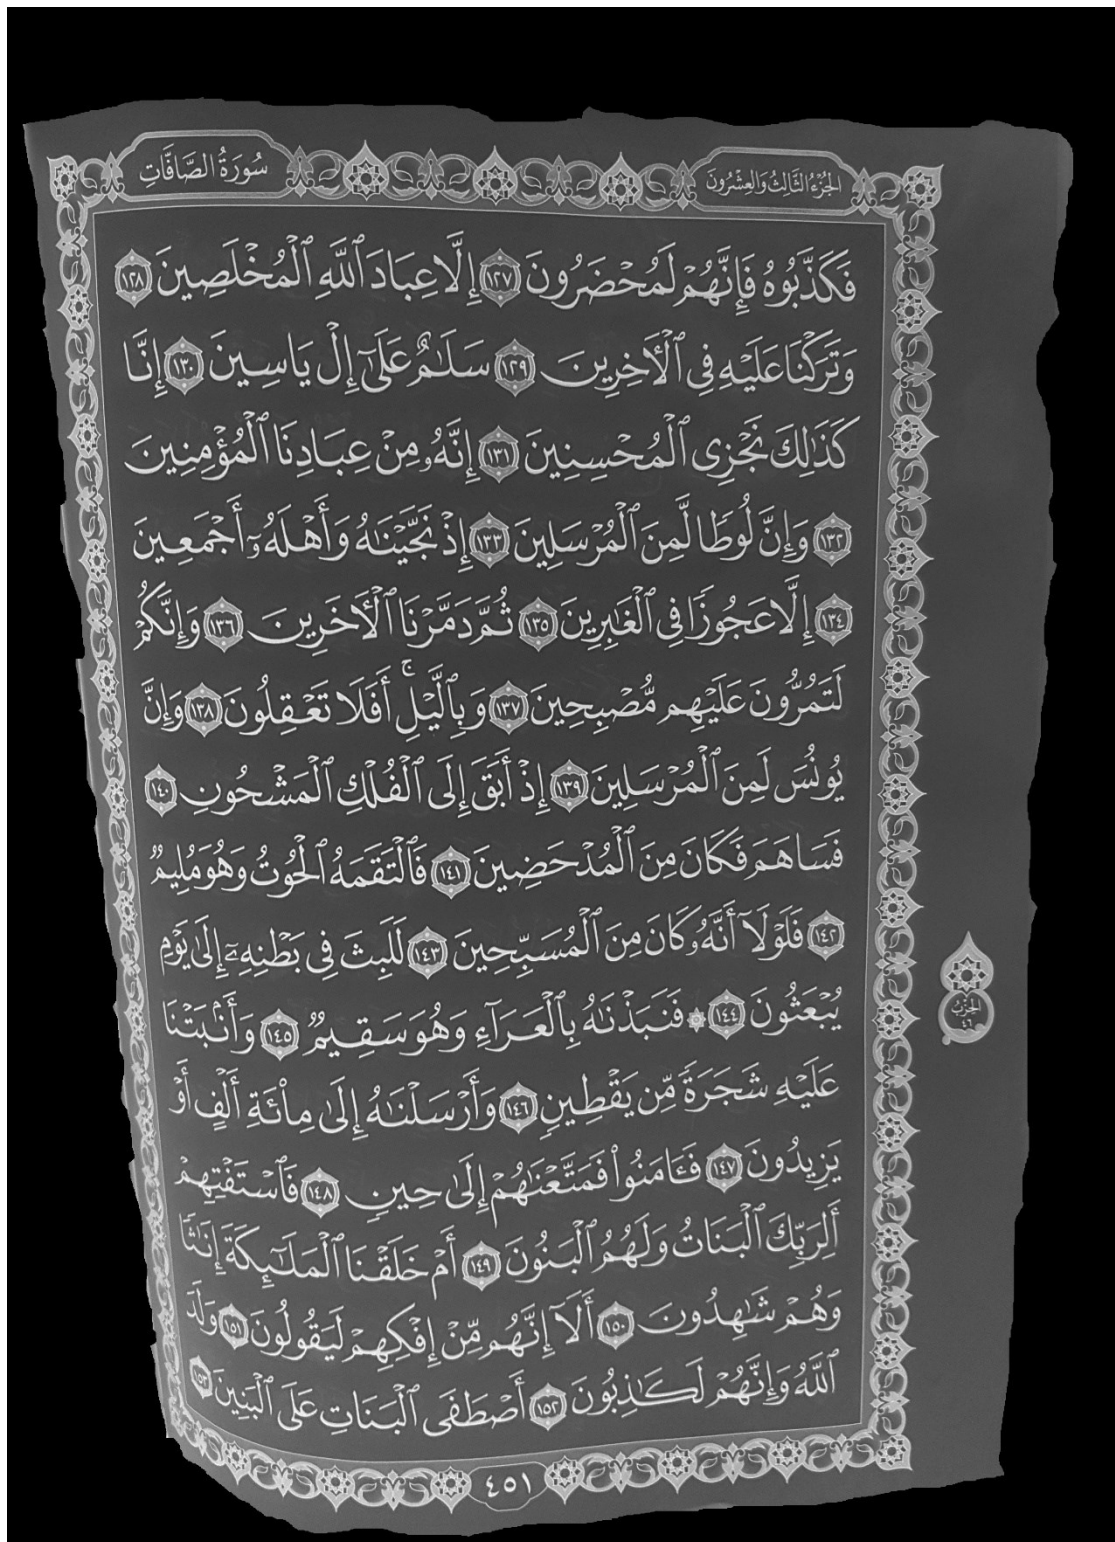 الجزء الثالث والعشرون
سورة الصافات
فَكَذَّبُوهُ فَإِنَّهُمْ لَمُحْضَرُونَ ١٢٧ إِلَّا عِبَادَ ٱللَّهِ ٱلْمُخْلَصِينَ ١٢٨
وَتَرَكْنَا عَلَيْهِ فِى ٱلْأَخِرِينَ ١٢٩ سَلَٰمٌ عَلَىٰٓ إِلْ يَاسِينَ ١٣٠ إِنَّا
كَذَٰلِكَ نَجْزِى ٱلْمُحْسِنِينَ ١٣١ إِنَّهُۥ مِنْ عِبَادِنَا ٱلْمُؤْمِنِينَ
١٣٢ وَإِنَّ لُوطًا لَّمِنَ ٱلْمُرْسَلِينَ ١٣٣ إِذْ نَجَّيْنَٰهُ وَأَهْلَهُۥٓ أَجْمَعِينَ
١٣٤ إِلَّا عَجُوزًا فِى ٱلْغَٰبِرِينَ ١٣٥ ثُمَّ دَمَّرْنَا ٱلْأَخَرِينَ ١٣٦ وَإِنَّكُمْ
لَتَمُرُّونَ عَلَيْهِم مُّصْبِحِينَ ١٣٧ وَبِٱلَّيْلِ ۚ أَفَلَا تَعْقِلُونَ ١٣٨ وَإِنَّ
يُونُسَ لَمِنَ ٱلْمُرْسَلِينَ ١٣٩ إِذْ أَبَقَ إِلَى ٱلْفُلْكِ ٱلْمَشْحُونِ ١٤٠
فَسَاهَمَ فَكَانَ مِنَ ٱلْمُدْحَضِينَ ١٤١ فَٱلْتَقَمَهُ ٱلْحُوتُ وَهُوَ مُلِيمٌ
١٤٢ فَلَوْلَآ أَنَّهُۥ كَانَ مِنَ ٱلْمُسَبِّحِينَ ١٤٣ لَلَبِثَ فِى بَطْنِهِۦٓ إِلَىٰ يَوْمِ
يُبْعَثُونَ ١٤٤ ۞ فَنَبَذْنَٰهُ بِٱلْعَرَآءِ وَهُوَ سَقِيمٌ ١٤٥ وَأَنۢبَتْنَا
عَلَيْهِ شَجَرَةً مِّن يَقْطِينٍ ١٤٦ وَأَرْسَلْنَٰهُ إِلَىٰ مِا۟ئَةِ أَلْفٍ أَوْ
يَزِيدُونَ ١٤٧ فَـَٔامَنُوا۟ فَمَتَّعْنَٰهُمْ إِلَىٰ حِينٍ ١٤٨ فَٱسْتَفْتِهِمْ
أَلِرَبِّكَ ٱلْبَنَاتُ وَلَهُمُ ٱلْبَنُونَ ١٤٩ أَمْ خَلَقْنَا ٱلْمَلَٰٓئِكَةَ إِنَٰثًا
وَهُمْ شَٰهِدُونَ ١٥٠ أَلَآ إِنَّهُم مِّنْ إِفْكِهِمْ لَيَقُولُونَ ١٥١ وَلَدَ
ٱللَّهُ وَإِنَّهُمْ لَكَٰذِبُونَ ١٥٢ أَصْطَفَى ٱلْبَنَاتِ عَلَى ٱلْبَنِينَ ١٥٣
الحزب
٤٦
٤٥١